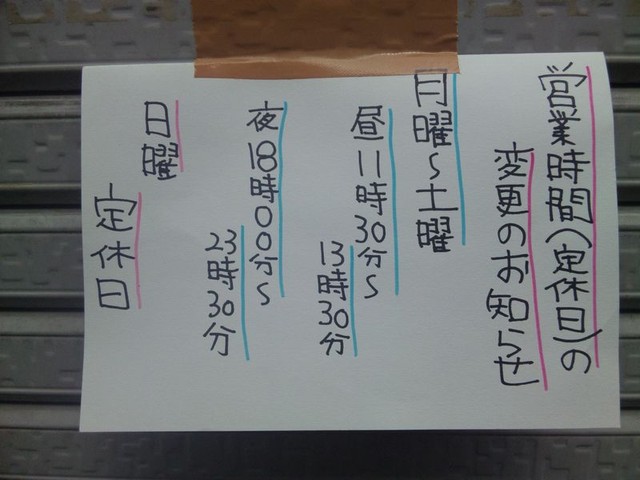 営業時間(定休日)の
変更のお知らせ
月曜～土曜
昼11時30分～
13時30分
夜18時00分～
23時30分
日曜
定休日